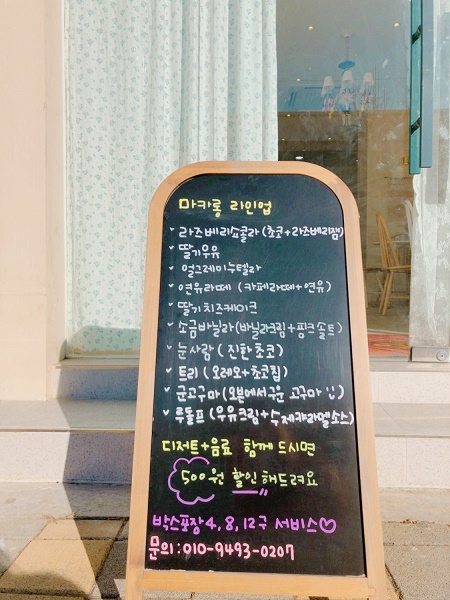 마카롱 라인업
라즈베리쇼콜라 (초코+라즈베리잼)
딸기우유
얼그레이누텔라
연유라떼 (카페라떼+연유)
딸기치즈케이크
소금바닐라 (바닐라크림+핑크솔트)
눈사람 (진한초코)
트리 (오레오+초코칩)
군고구마 (오븐에서구운 고구마 :))
루돌프 (우유크림+수제캬라멜소스)
디저트+음료 함께 드시면
500원 할인 해드려요
박스포장 4, 8, 12구 서비스♡
문의 : 010-9493-0207